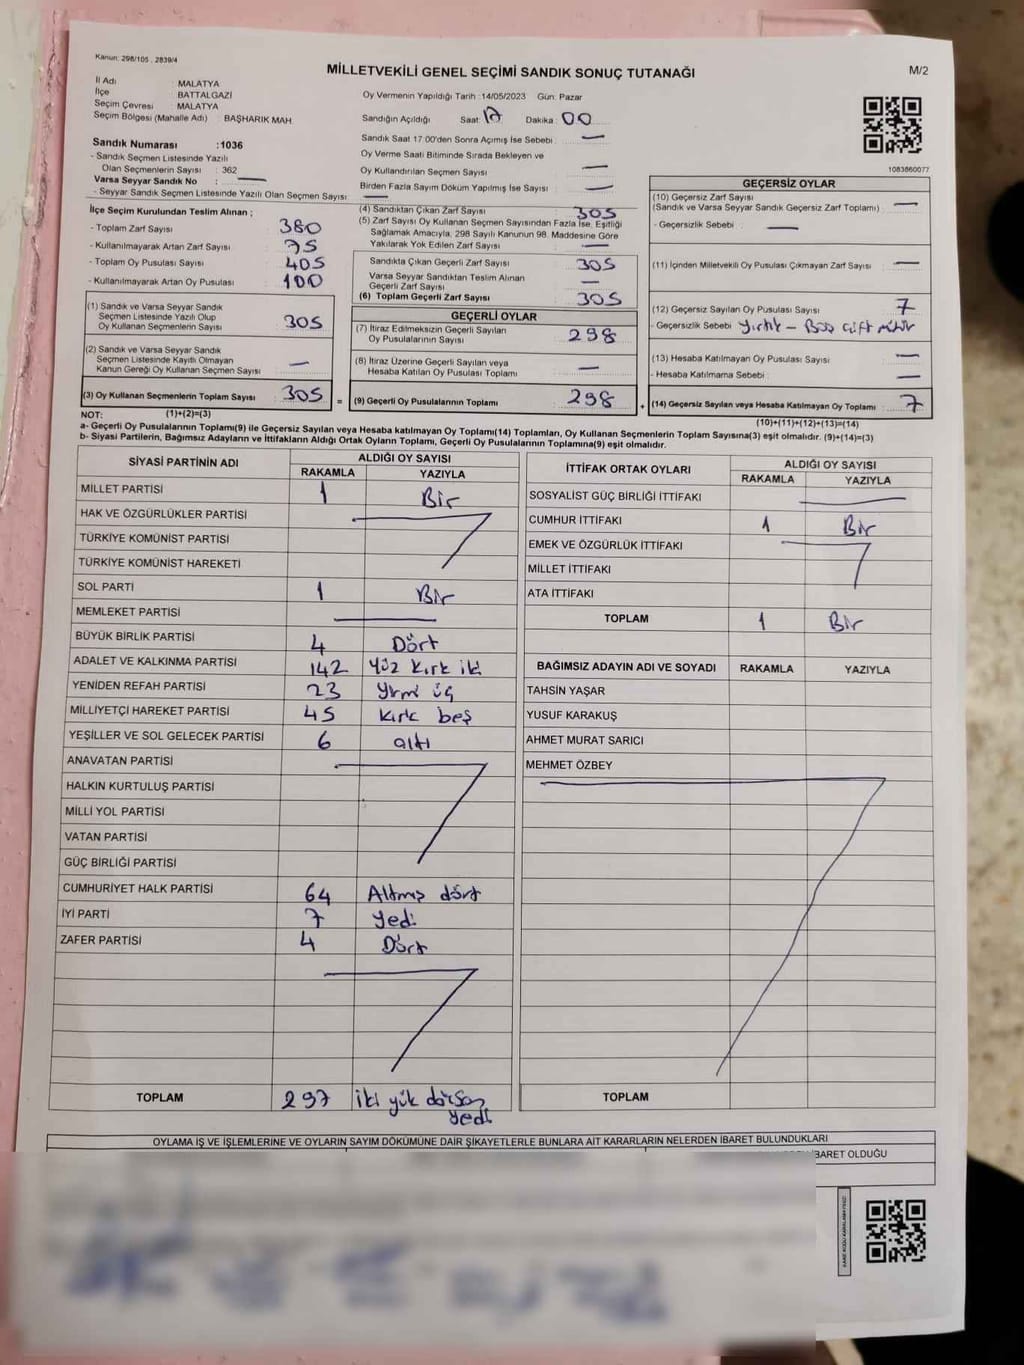 Kanun: 298/105 , 2839/4
MİLLETVEKİLİ GENEL SEÇİMİ SANDIK SONUÇ TUTANAĞI
M/2
İl Adı : MALATYA
İlçe : BATTALGAZİ
Seçim Çevresi : MALATYA
Seçim Bölgesi (Mahalle Adı) : BAŞHARIK MAH.
Sandık Numarası :1036
- Sandık Seçmen Listesinde Yazılı
Olan Seçmenlerin Sayısı : 362
Varsa Seyyar Sandık No : —
- Seyyar Sandık Seçmen Listesinde Yazılı Olan Seçmen Sayısı: —
İlçe Seçim Kurulundan Teslim Alınan ;
- Toplam Zarf Sayısı : 380
- Kullanılmayarak Artan Zarf Sayısı : 75
- Toplam Oy Pusulası Sayısı : 405
- Kullanılmayarak Artan Oy Pusulası : 100
(1) Sandık ve Varsa Seyyar Sandık
Seçmen Listesinde Yazılı Olup
Oy Kullanan Seçmenlerin Sayısı : 305
(2) Sandık ve Varsa Seyyar Sandık
Seçmen Listesinde Kayıtlı Olmayan
Kanun Gereği Oy Kullanan Seçmen Sayısı : —
(3) Oy Kullanan Seçmenlerin Toplam Sayısı : 305
Oy Vermenin Yapıldığı Tarih :14/05/2023 Gün: Pazar
Sandığın Açıldığı Saat: 17 Dakika: 00
Sandık Saat 17:00'den Sonra Açımış İse Sebebi : —
Oy Verme Saati Bitiminde Sırada Bekleyen ve
Oy Kullandırılan Seçmen Sayısı : —
Birden Fazla Sayım Döküm Yapılmış İse Sayısı : —
(4) Sandıktan Çıkan Zarf Sayısı : 305
(5) Zarf Sayısı Oy Kullanan Seçmen Sayısından Fazla İse, Eşitliği
Sağlamak Amacıyla, 298 Sayılı Kanunun 98. Maddesine Göre
Yakılarak Yok Edilen Zarf Sayısı : —
Sandıkta Çıkan Geçerli Zarf Sayısı : 305
Varsa Seyyar Sandıktan Teslim Alınan
Geçerli Zarf Sayısı : —
(6) Toplam Geçerli Zarf Sayısı : 305
GEÇERLİ OYLAR
(7) İtiraz Edilmeksizin Geçerli Sayılan
Oy Pusulalarının Sayısı : 298
(8) İtiraz Üzerine Geçerli Sayılan veya
Hesaba Katılan Oy Pusulası Toplamı : —
= (9) Geçerli Oy Pusulalarının Toplamı : 298
1083860077
GEÇERSİZ OYLAR
(10) Geçersiz Zarf Sayısı
(Sandık ve Varsa Seyyar Sandık Geçersiz Zarf Toplamı) : —
- Geçersizlik Sebebi : —
(11) İçinden Milletvekili Oy Pusulası Çıkmayan Zarf Sayısı : —
(12) Geçersiz Sayılan Oy Pusulası Sayısı : 7
- Geçersizlik Sebebi : Yırtık - Boş çift mühür
(13) Hesaba Katılmayan Oy Pusulası Sayısı : —
- Hesaba Katılmama Sebebi : —
+ (14) Geçersiz Sayılan veya Hesaba Katılmayan Oy Toplamı : 7
NOT: (1)+(2)=(3)
(10)+(11)+(12)+(13)=(14)
a- Geçerli Oy Pusulalarının Toplamı(9) ile Geçersiz Sayılan veya Hesaba katılmayan Oy Toplamı(14) Toplamları, Oy Kullanan Seçmenlerin Toplam Sayısına(3) eşit olmalıdır. (9)+(14)=(3)
b- Siyasi Partilerin, Bağımsız Adayların ve İttifakların Aldığı Ortak Oyların Toplamı, Geçerli Oy Pusulalarının Toplamına(9) eşit olmalıdır.
SİYASİ PARTİNİN ADI ALDIĞI OY SAYISI
RAKAMLA YAZIYLA
MİLLET PARTİSİ 1 Bir
HAK VE ÖZGÜRLÜKLER PARTİSİ
TÜRKİYE KOMÜNİST PARTİSİ
TÜRKİYE KOMÜNİST HAREKETİ
SOL PARTİ 1 Bir
MEMLEKET PARTİSİ —
BÜYÜK BİRLİK PARTİSİ 4 Dört
ADALET VE KALKINMA PARTİSİ 142 Yüz kırk iki
YENİDEN REFAH PARTİSİ 23 Yirmi üç
MİLLİYETÇİ HAREKET PARTİSİ 45 kırk beş
YEŞİLLER VE SOL GELECEK PARTİSİ 6 altı
ANAVATAN PARTİSİ
HALKIN KURTULUŞ PARTİSİ
MİLLİ YOL PARTİSİ
VATAN PARTİSİ
GÜÇ BİRLİĞİ PARTİSİ
CUMHURİYET HALK PARTİSİ 64 Altmış dört
İYİ PARTİ 7 Yedi
ZAFER PARTİSİ 4 Dört
TOPLAM 297 iki yük doksan
yedi
İTTİFAK ORTAK OYLARI ALDIĞI OY SAYISI
RAKAMLA YAZIYLA
SOSYALİST GÜÇ BİRLİĞİ İTTİFAKI —
CUMHUR İTTİFAKI 1 Bir
EMEK VE ÖZGÜRLÜK İTTİFAKI
MİLLET İTTİFAKI
ATA İTTİFAKI
TOPLAM 1 Bir
BAĞIMSIZ ADAYIN ADI VE SOYADI RAKAMLA YAZIYLA
TAHSİN YAŞAR
YUSUF KARAKUŞ
AHMET MURAT SARICI
MEHMET ÖZBEY
TOPLAM
OYLAMA İŞ VE İŞLEMLERİNE VE OYLARIN SAYIM DÖKÜMÜNE DAİR ŞİKAYETLERLE BUNLARA AİT KARARLARIN NELERDEN İBARET BULUNDUKLARI
İBARET OLDUĞU